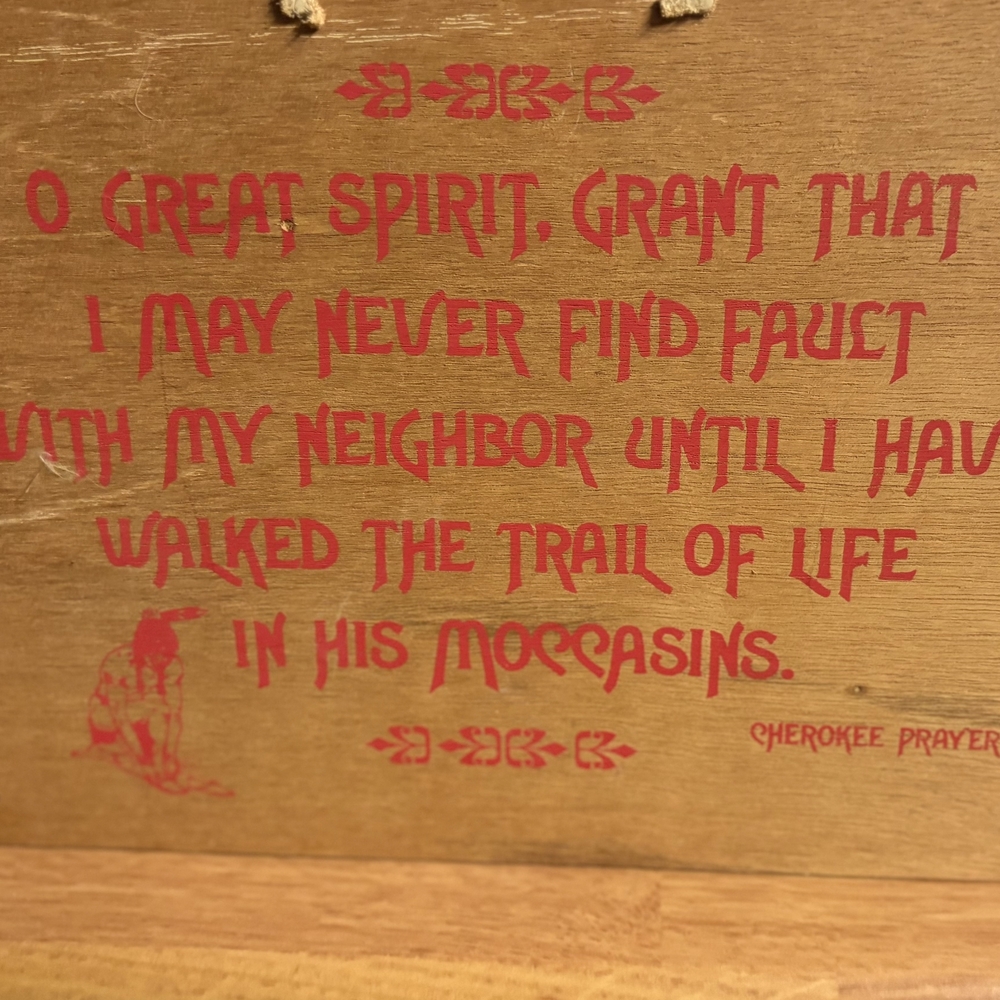 O GREAT SPIRIT, GRANT THAT
I MAY NEVER FIND FAULT
WITH MY NEIGHBOR UNTIL I HAV
WALKED THE TRAIL OF LIFE
IN HIS MOCCASINS.
CHEROKEE PRAYER